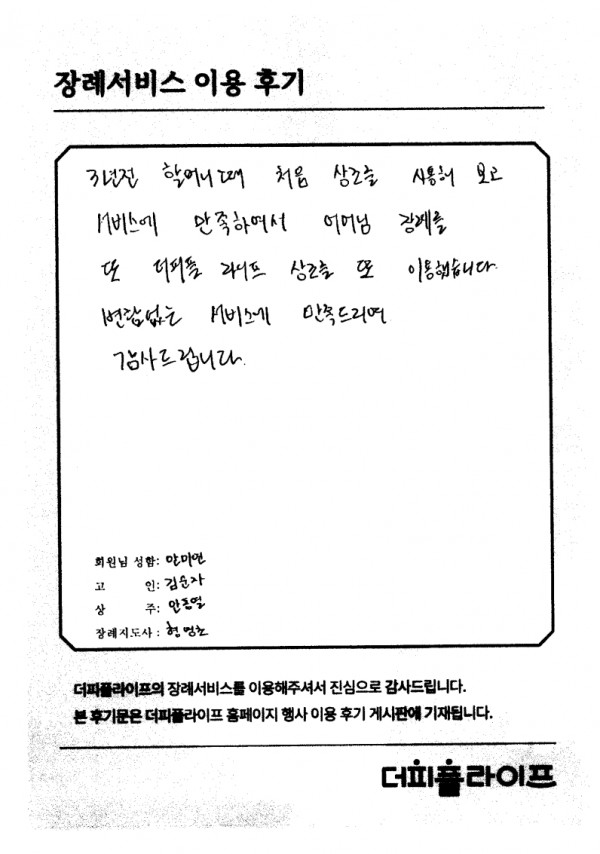 장례서비스 이용 후기
3년전 할머니때 처음 상조를 사용해 보고
서비스에 만족하여서 어머님 장례를
또 더피플 라이프 상조를 또 이용했습니다.
변함없는 서비스에 만족드리며
감사드립니다.
회원님 성함: 안미연
고 인: 김순자
상 주: 안동열
장례지도사:
더피플라이프의 장례서비스를 이용해주셔서 진심으로 감사드립니다.
본 후기문은 더피플라이프 홈페이지 행사 이용 후기 게시판에 기재됩니다.
더피플라이프